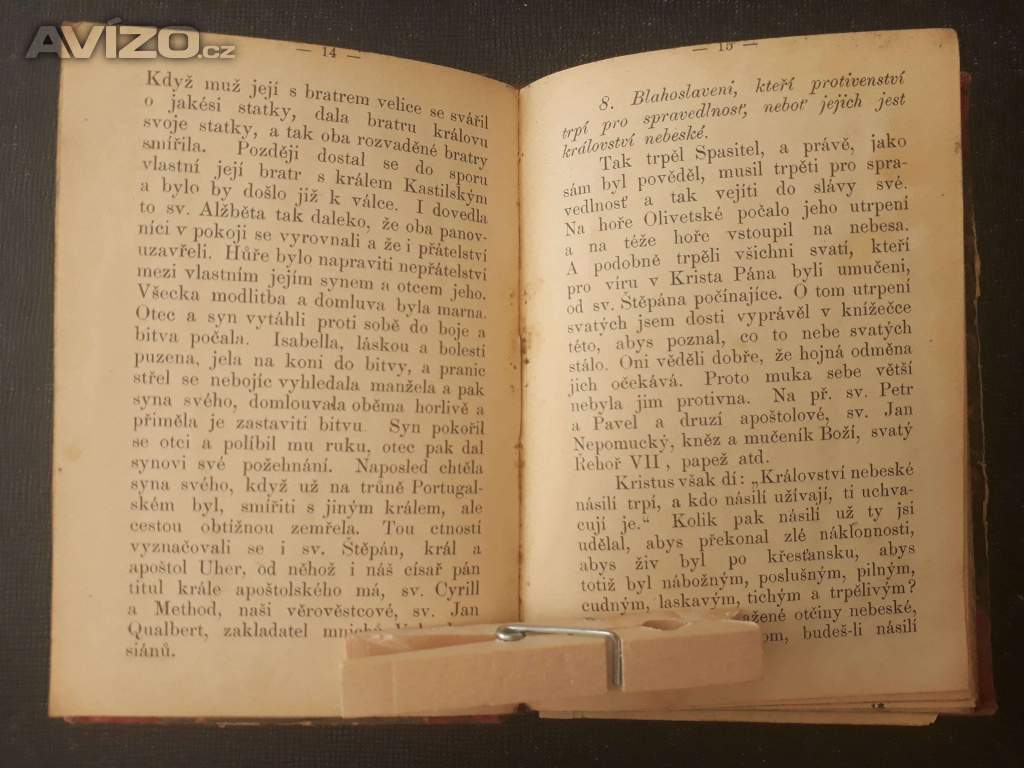 AVÍZO.cz
— 14 —
Když muž její s bratrem velice se svářil
o jakési statky, dala bratru královu
svoje statky, a tak oba rozvaděné bratry
smířila. Později dostal se do sporu
vlastní její bratr s králem Kastilským
a bylo by došlo již k válce. I dovedla
to sv. Alžběta tak daleko, že oba panov-
níci v pokoji se vyrovnali a že i přátelství
uzavřeli. Hůře bylo napraviti nepřátelství
mezi vlastním jejím synem a otcem jeho.
Všecka modlitba a domluva byla marna.
Otec a syn vytáhli proti sobě do boje a
bitva počala. Isabella, láskou a bolestí
puzena, jela na koni do bitvy, a pranic
střel se nebojíc vyhledala manžela a pak
syna svého, domlouvala oběma horlivě a
přiměla je zastaviti bitvu. Syn pokořil
se otci a políbil mu ruku, otec pak dal
synovi své požehnání. Naposled chtěla
syna svého, když už na trůně Portugal-
ském byl, smířiti s jiným králem, ale
cestou obtížnou zemřela. Tou ctností
vyznačovali se i sv. Štěpán, král a
apoštol Uher, od něhož i náš císař pán
titul krále apoštolského má, sv. Cyrill
a Method, naši věrověstcové, sv. Jan
Qualbert, zakladatel mnichů
siánů.
— 15 —
8. Blahoslaveni, kteří protivenství
trpí pro spravedlnosť, neboť jejich jest
království nebeské.
Tak trpěl Spasitel, a právě, jako
sám byl pověděl, musil trpěti pro spra-
vedlnosť a tak vejíti do slávy své.
Na hoře Olivetské počalo jeho utrpení
a na téže hoře vstoupil na nebesa.
A podobně trpěli všichni svatí, kteří
pro víru v Krista Pána byli umučeni,
od sv. Štěpána počínajíce. O tom utrpení
svatých jsem dosti vyprávěl v knížečce
této, abys poznal, co to nebe svatých
stálo. Oni věděli dobře, že hojná odměna
jich očekává. Proto muka sebe větší
nebyla jim protivna. Na př. sv. Petr
a Pavel a druzí apoštolové, sv. Jan
Nepomucký, kněz a mučeník Boží, svatý
Řehoř VII, papež atd.
Kristus však dí: „Království nebeské
násilí trpí, a kdo násilí užívají, ti uchva-
cují je.“ Kolik pak násilí už ty jsi
udělal, abys překonal zlé náklonnosti,
abys živ byl po křesťansku, abys
totiž byl nábožným, poslušným, pilným,
cudným, laskavým, tichým a trpělivým?
otčiny nebeské,
budeš-li násilí